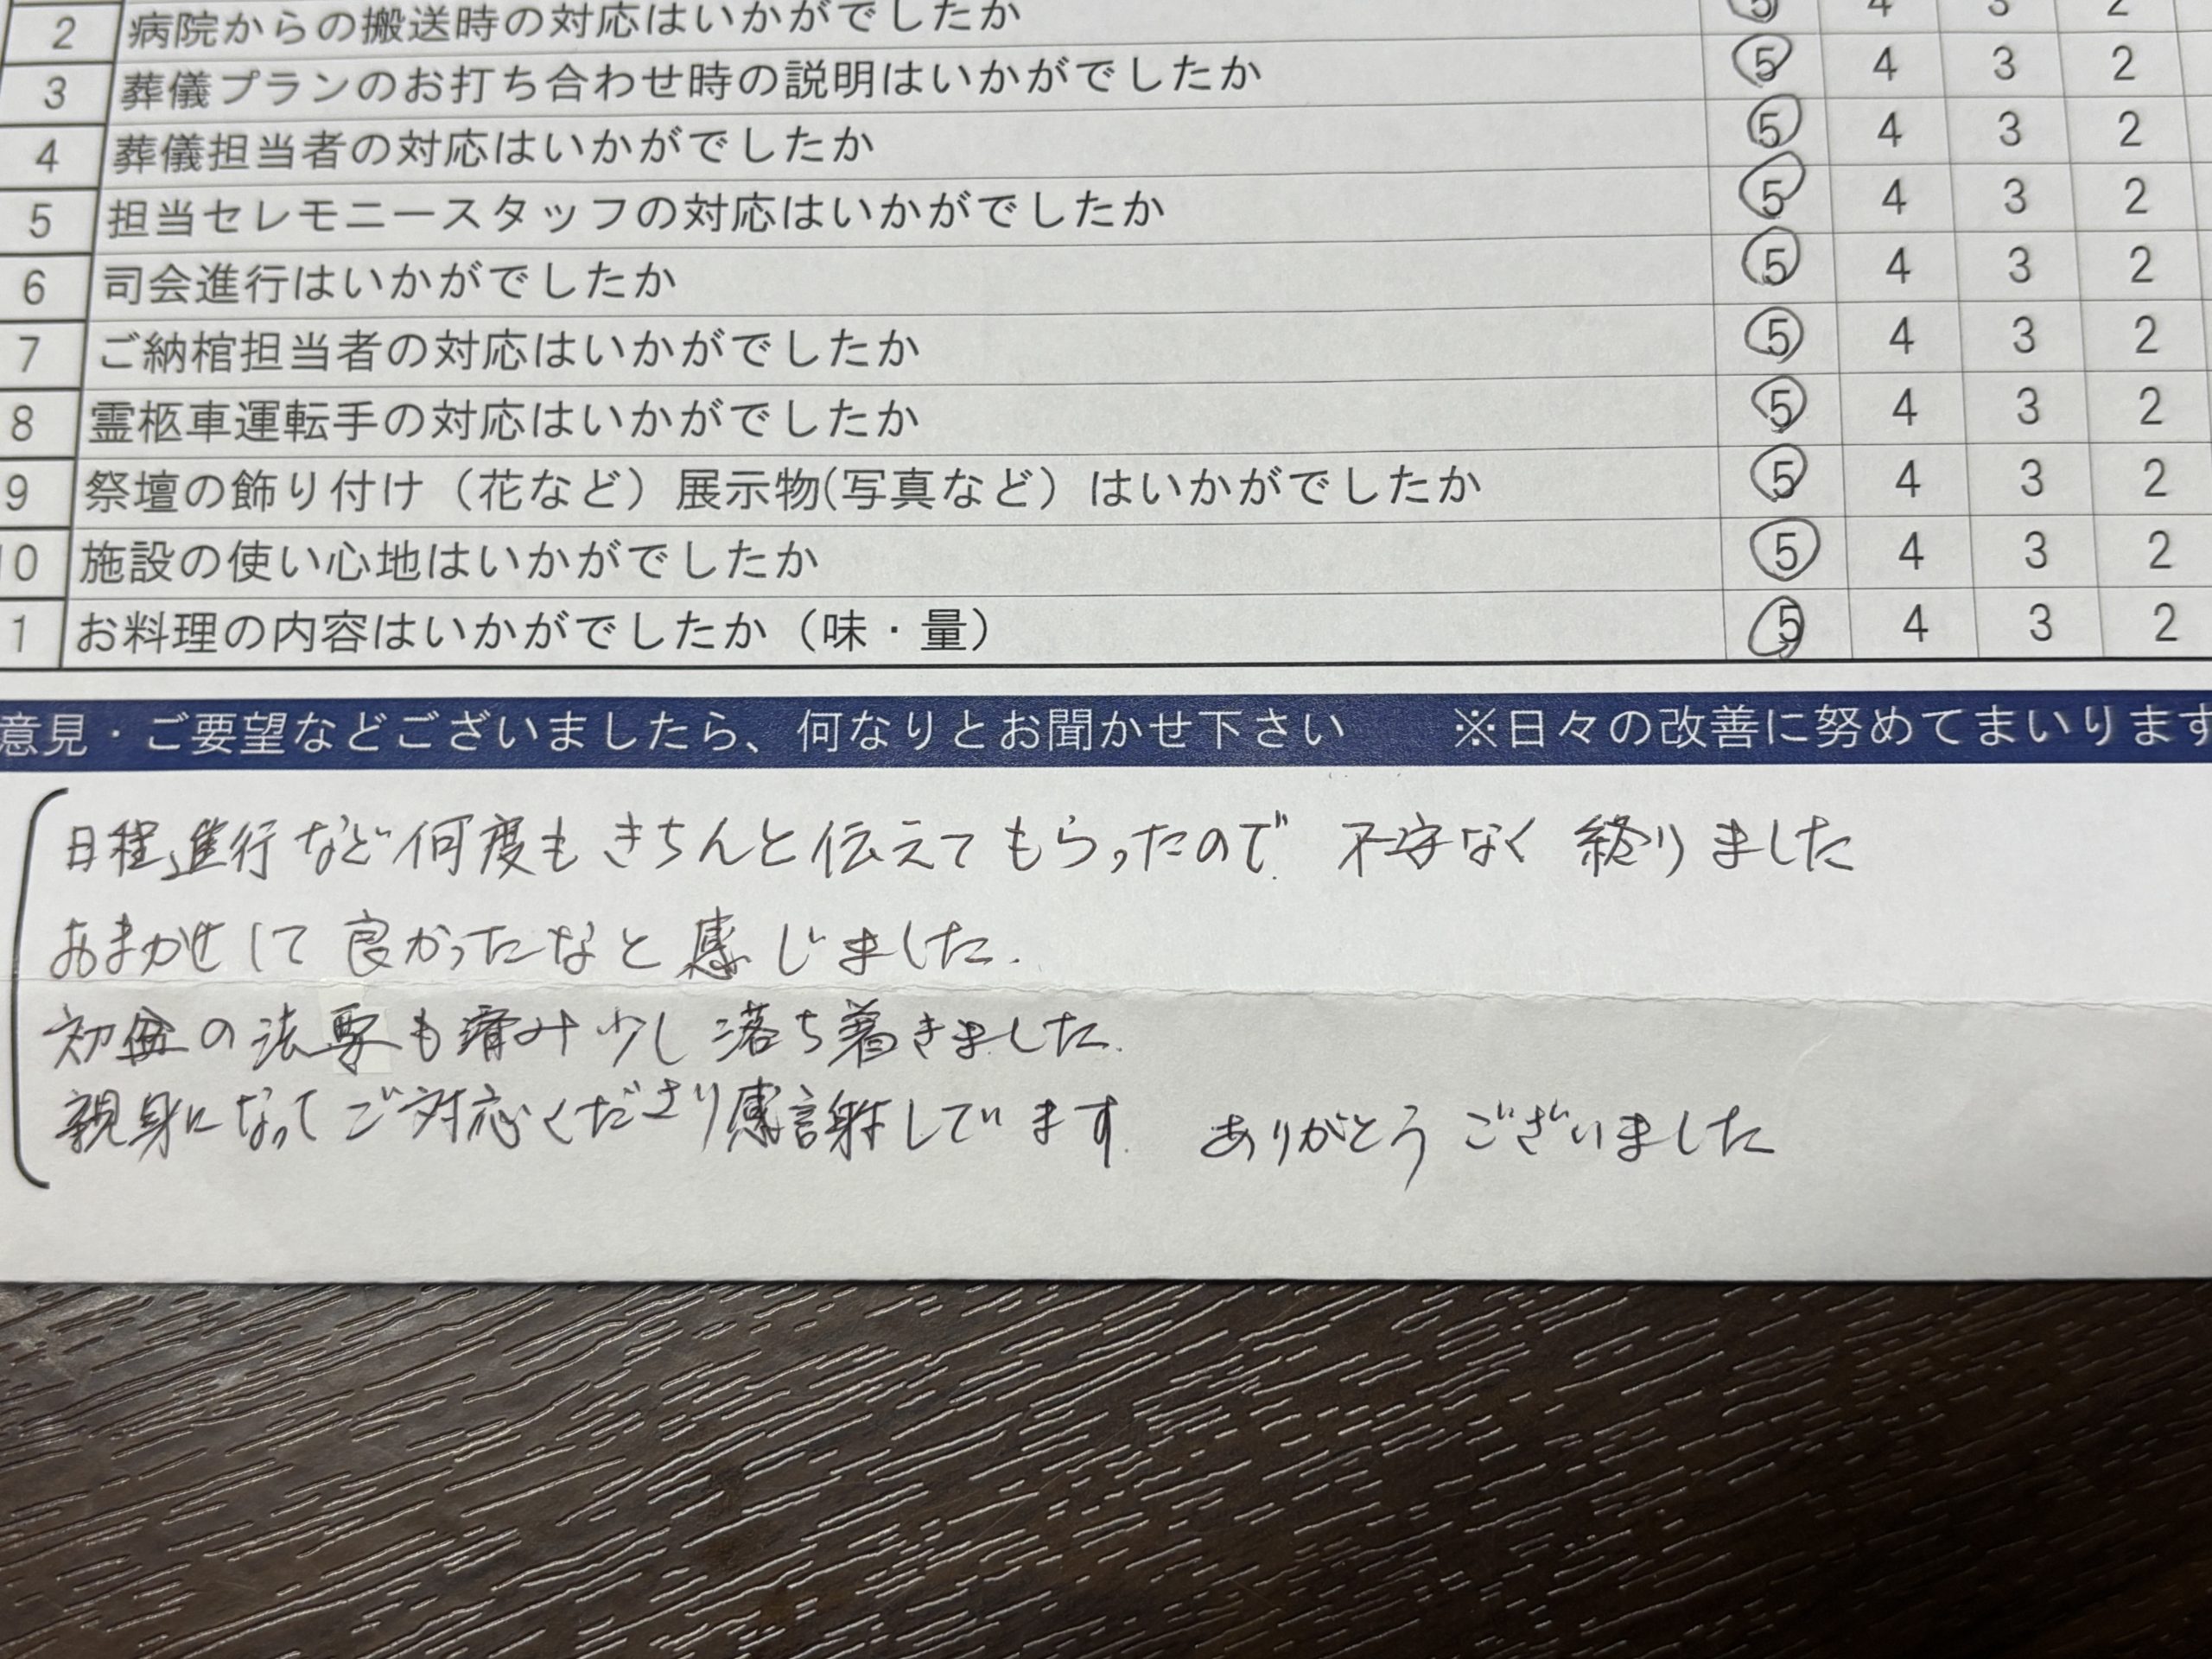 2 病院からの搬送時の対応はいかがでしたか 5 4 3 2
3 葬儀プランのお打ち合わせ時の説明はいかがでしたか 5 4 3 2
4 葬儀担当者の対応はいかがでしたか 5 4 3 2
5 担当セレモニースタッフの対応はいかがでしたか 5 4 3 2
6 司会進行はいかがでしたか 5 4 3 2
7 ご納棺担当者の対応はいかがでしたか 5 4 3 2
8 霊柩車運転手の対応はいかがでしたか 5 4 3 2
9 祭壇の飾り付け（花など）展示物(写真など）はいかがでしたか 5 4 3 2
10 施設の使い心地はいかがでしたか 5 4 3 2
1 お料理の内容はいかがでしたか（味・量） 5 4 3 2
意見・ご要望などございましたら、何なりとお聞かせ下さい ※日々の改善に努めてまいります
日程、進行など何度もきちんと伝えてもらったので 不安なく 終りました
おまかせして 良かったなと 感じました.
初盆の法要も済み少し落ち着きました.
親身になってご対応くださり感謝しています. ありがとうございました